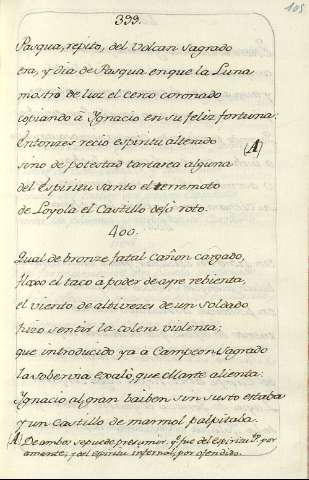 399.
105
Pasqua, repito, del Volcan Sagrado
era, y dia de Pasqua en que la Luna
mostrò de luz el cerco coronado
copiando à Ygnacio en su feliz fortuna.
Entonzes recio espiritu alterado
sino de potestad tartarea alguna (A)
del Espiritu Santo el terremoto
de Loyola el Castillo dejò roto.
400.
Qual de bronze fatal Cañon cargado,
floxo el taco à poder de ayre rebienta,
el viento de altivezes de un Soldado
hizo sentir la colera violenta;
que introducido ya a Campeon Sagrado
la Sobervia exalò, que Marte alienta:
Ygnacio al gran baiben sin susto estaba
y un Castillo de marmol palpitaba.
(A) De ambos se puede presumir. q̃ fue del Espiritu Sto. por
amante; y del espiritu infernal, por ofendido.